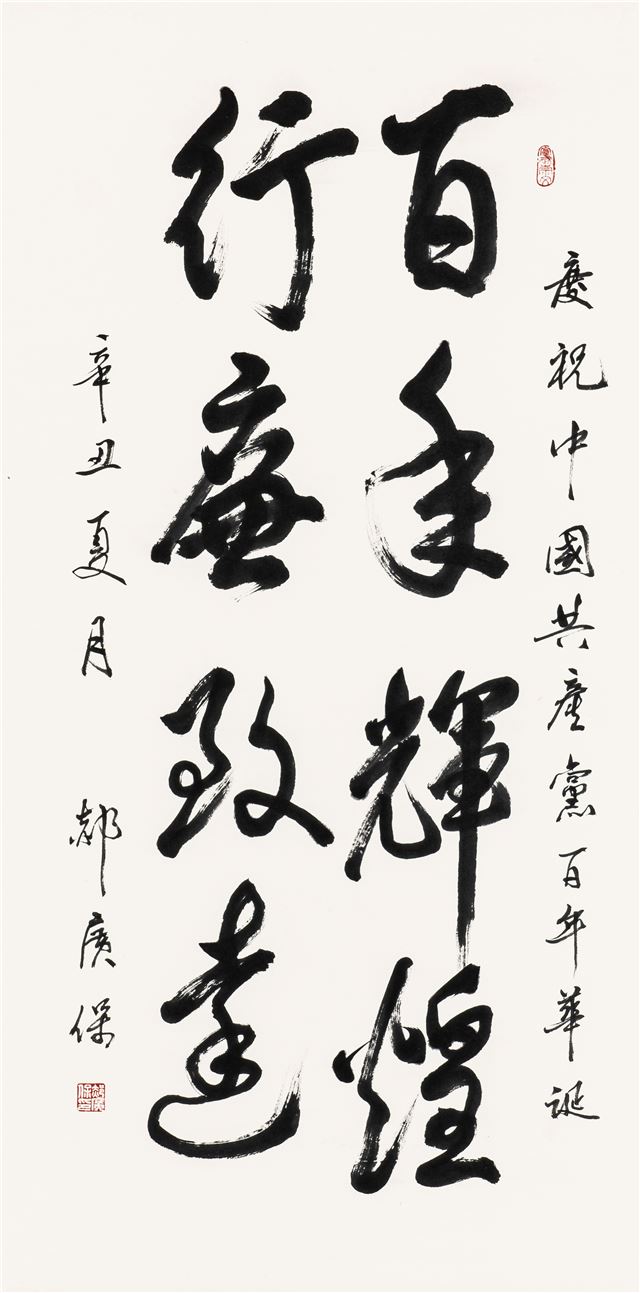 慶祝中國共產黨百年華誕
百年輝煌
行廉致遠
辛丑夏月 郝廣保